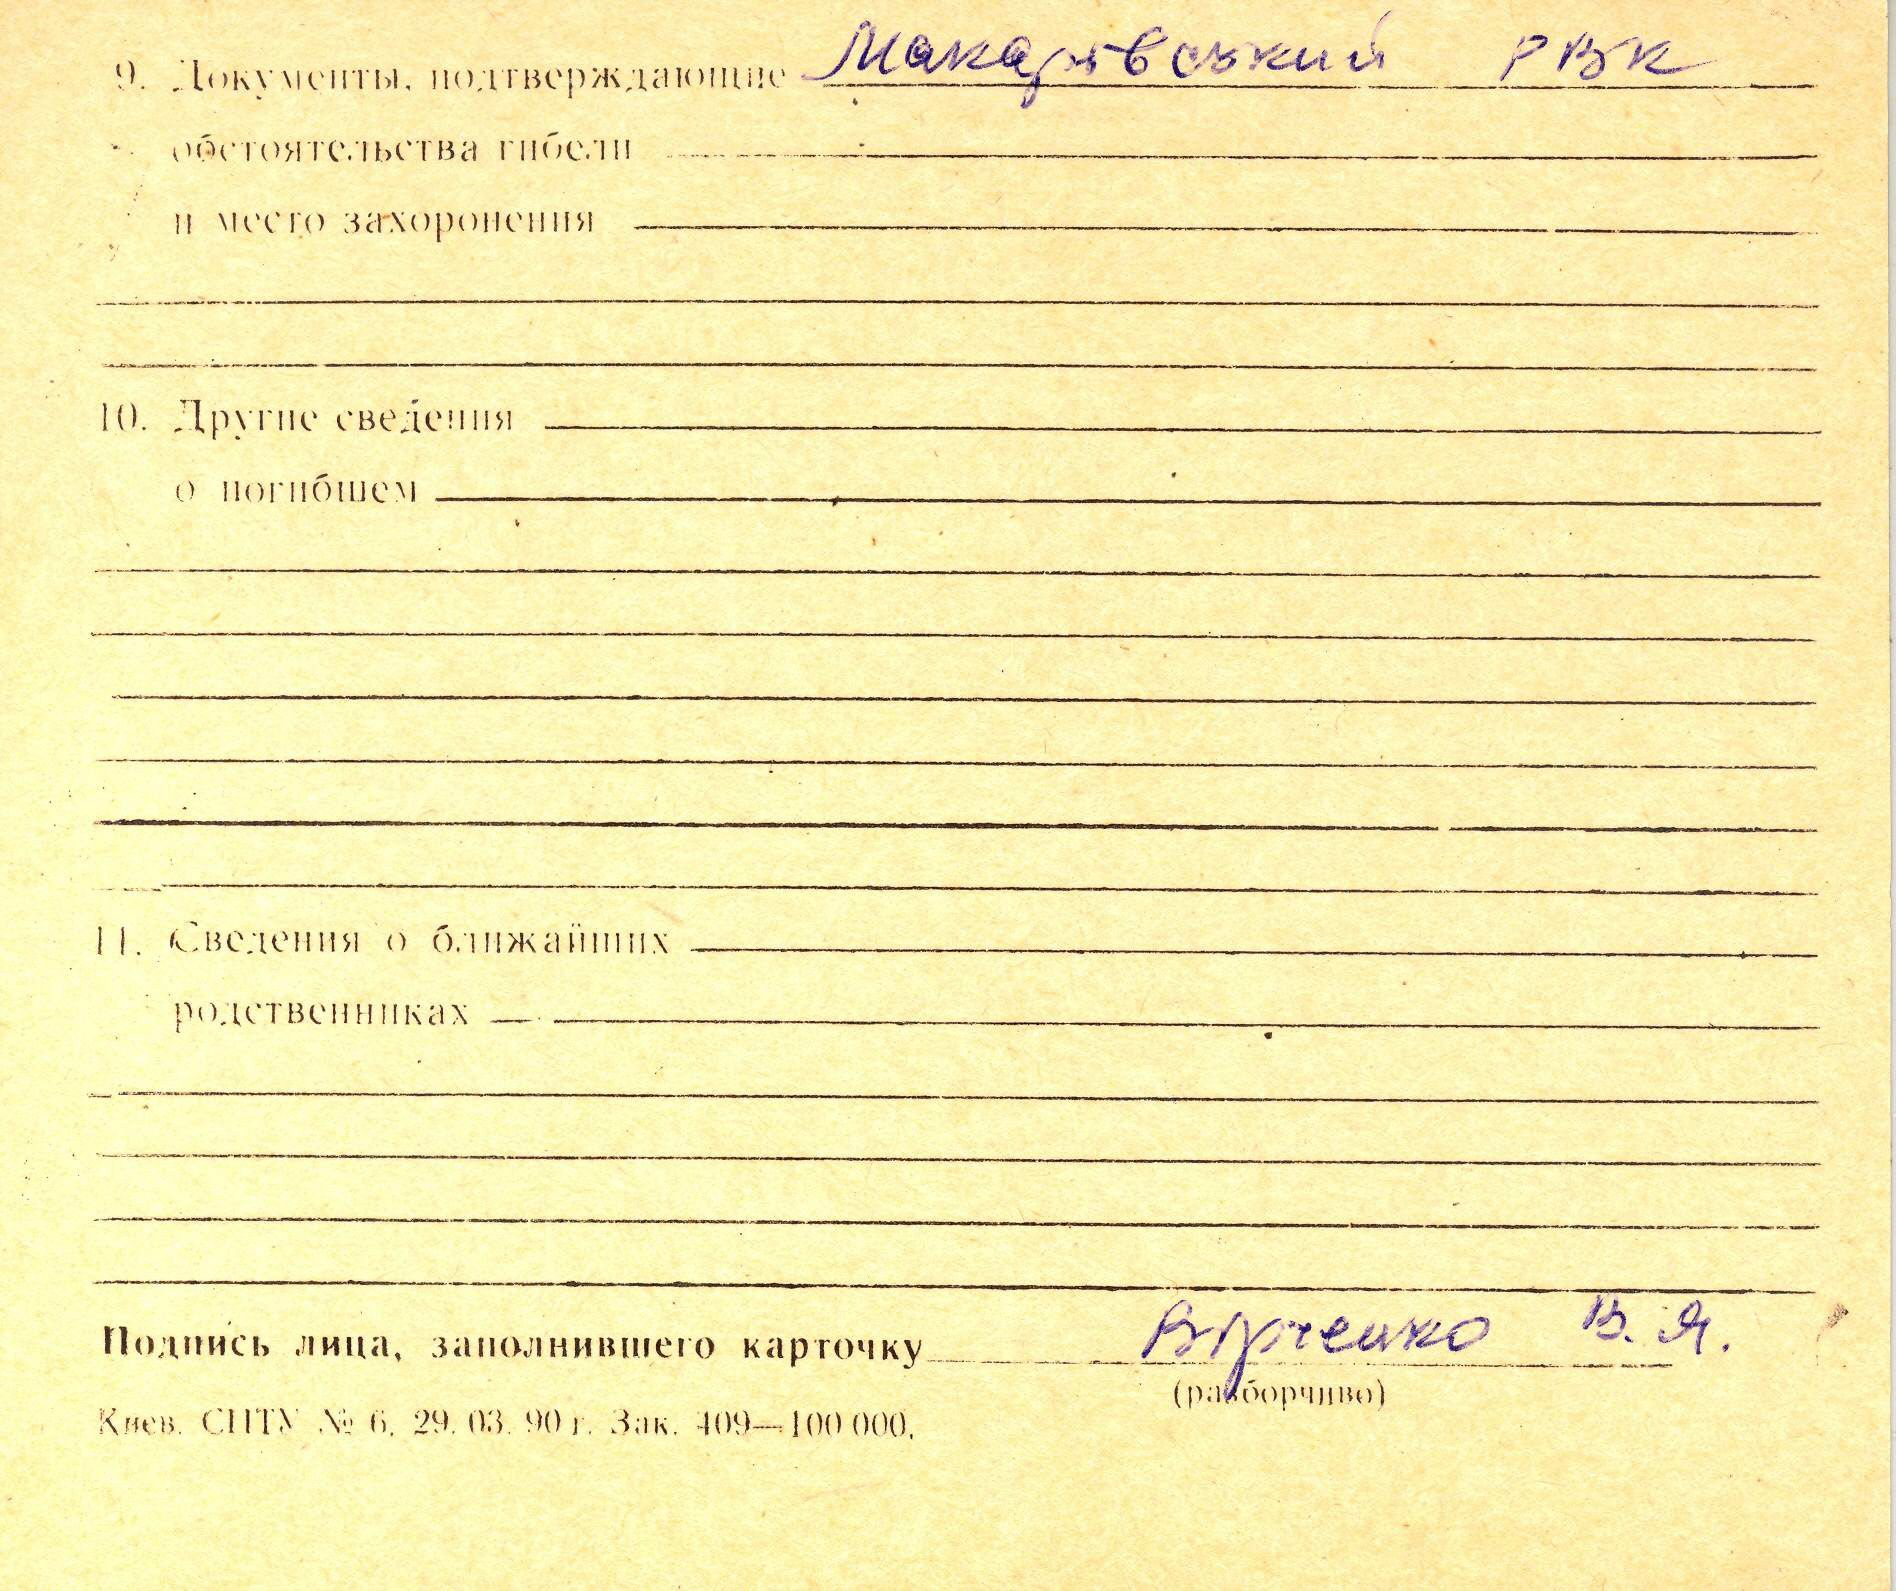 9. Документы, подтверждающие Макарівський РВК
обстоятельства гибели
и место захоронения
10. Другие сведения
о погибшем
11. Сведения о ближайших
родственниках
Подпись лица, заполнившего карточку Вірченко В. Я.
(разборчиво)
Киев. СПТУ № 6. 29. 03. 90 г. Зак. 409—100 000.